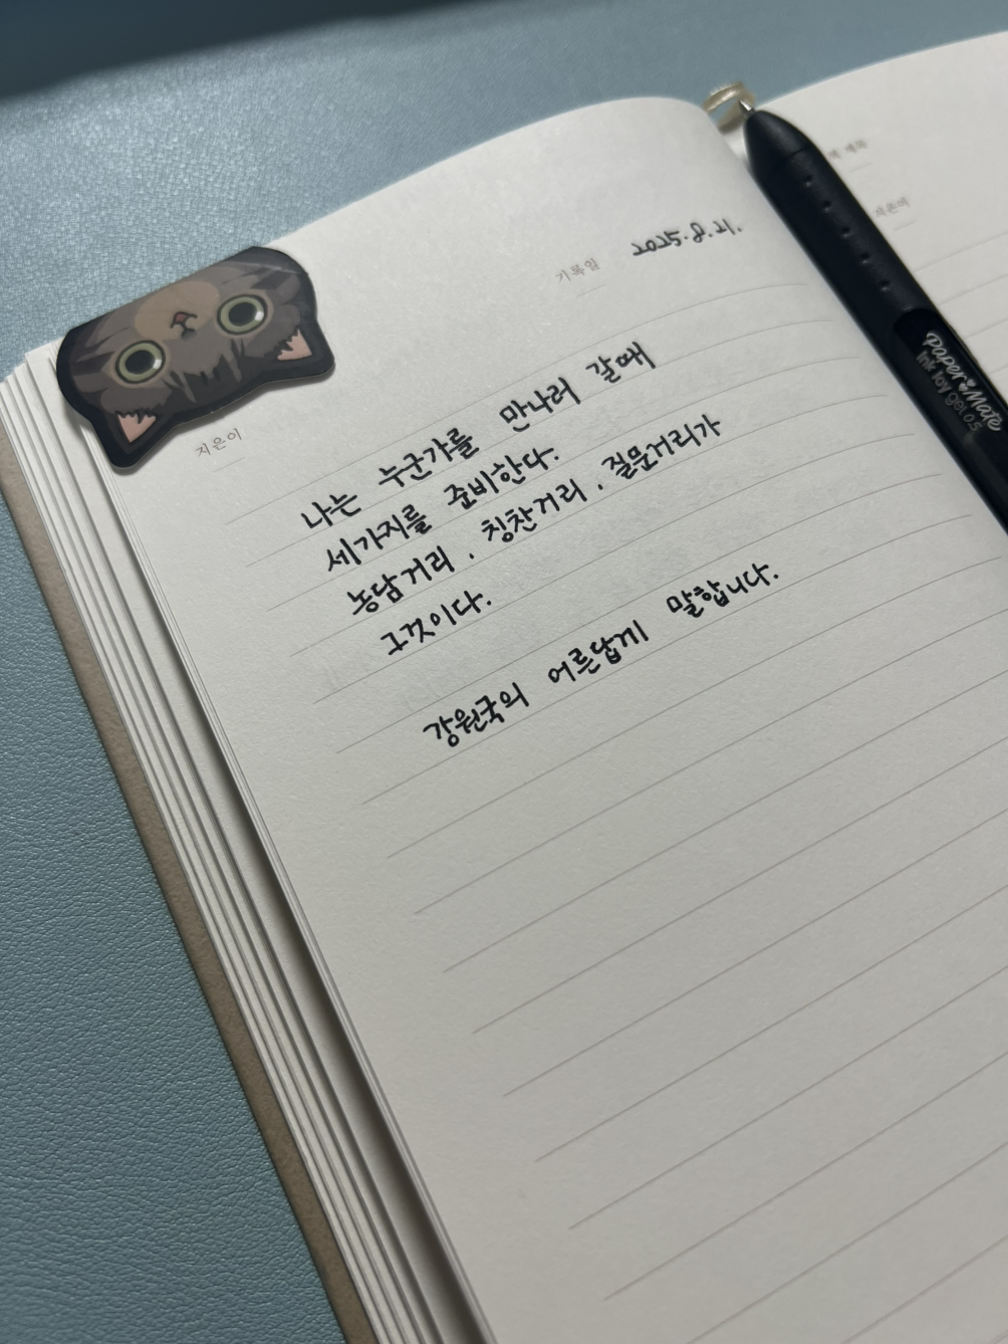 기록일 2025.8.21.
지은이
나는 누군가를 만나러 갈때
세가지를 준비한다.
농담거리, 칭찬거리, 질문거리가
그것이다.
강원국의 어른답게 말합니다.
제목
지은이
Paper Mate
Ink Joy gel 0.5